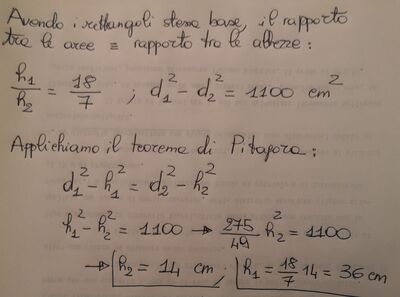 Avendo i rettangoli stessa base, il rapporto
tra le aree ≡ rapporto tra le altezze:
h₁/h₂ = 18/7 ; d₁² - d₂² = 1100 cm²
Applichiamo il teorema di Pitagora:
d₁² - h₁² = d₂² - h₂²
h₁² - h₂² = 1100 → 275/49 h₂² = 1100
→ h₂ = 14 cm ; h₁ = 18/7 14 = 36 cm